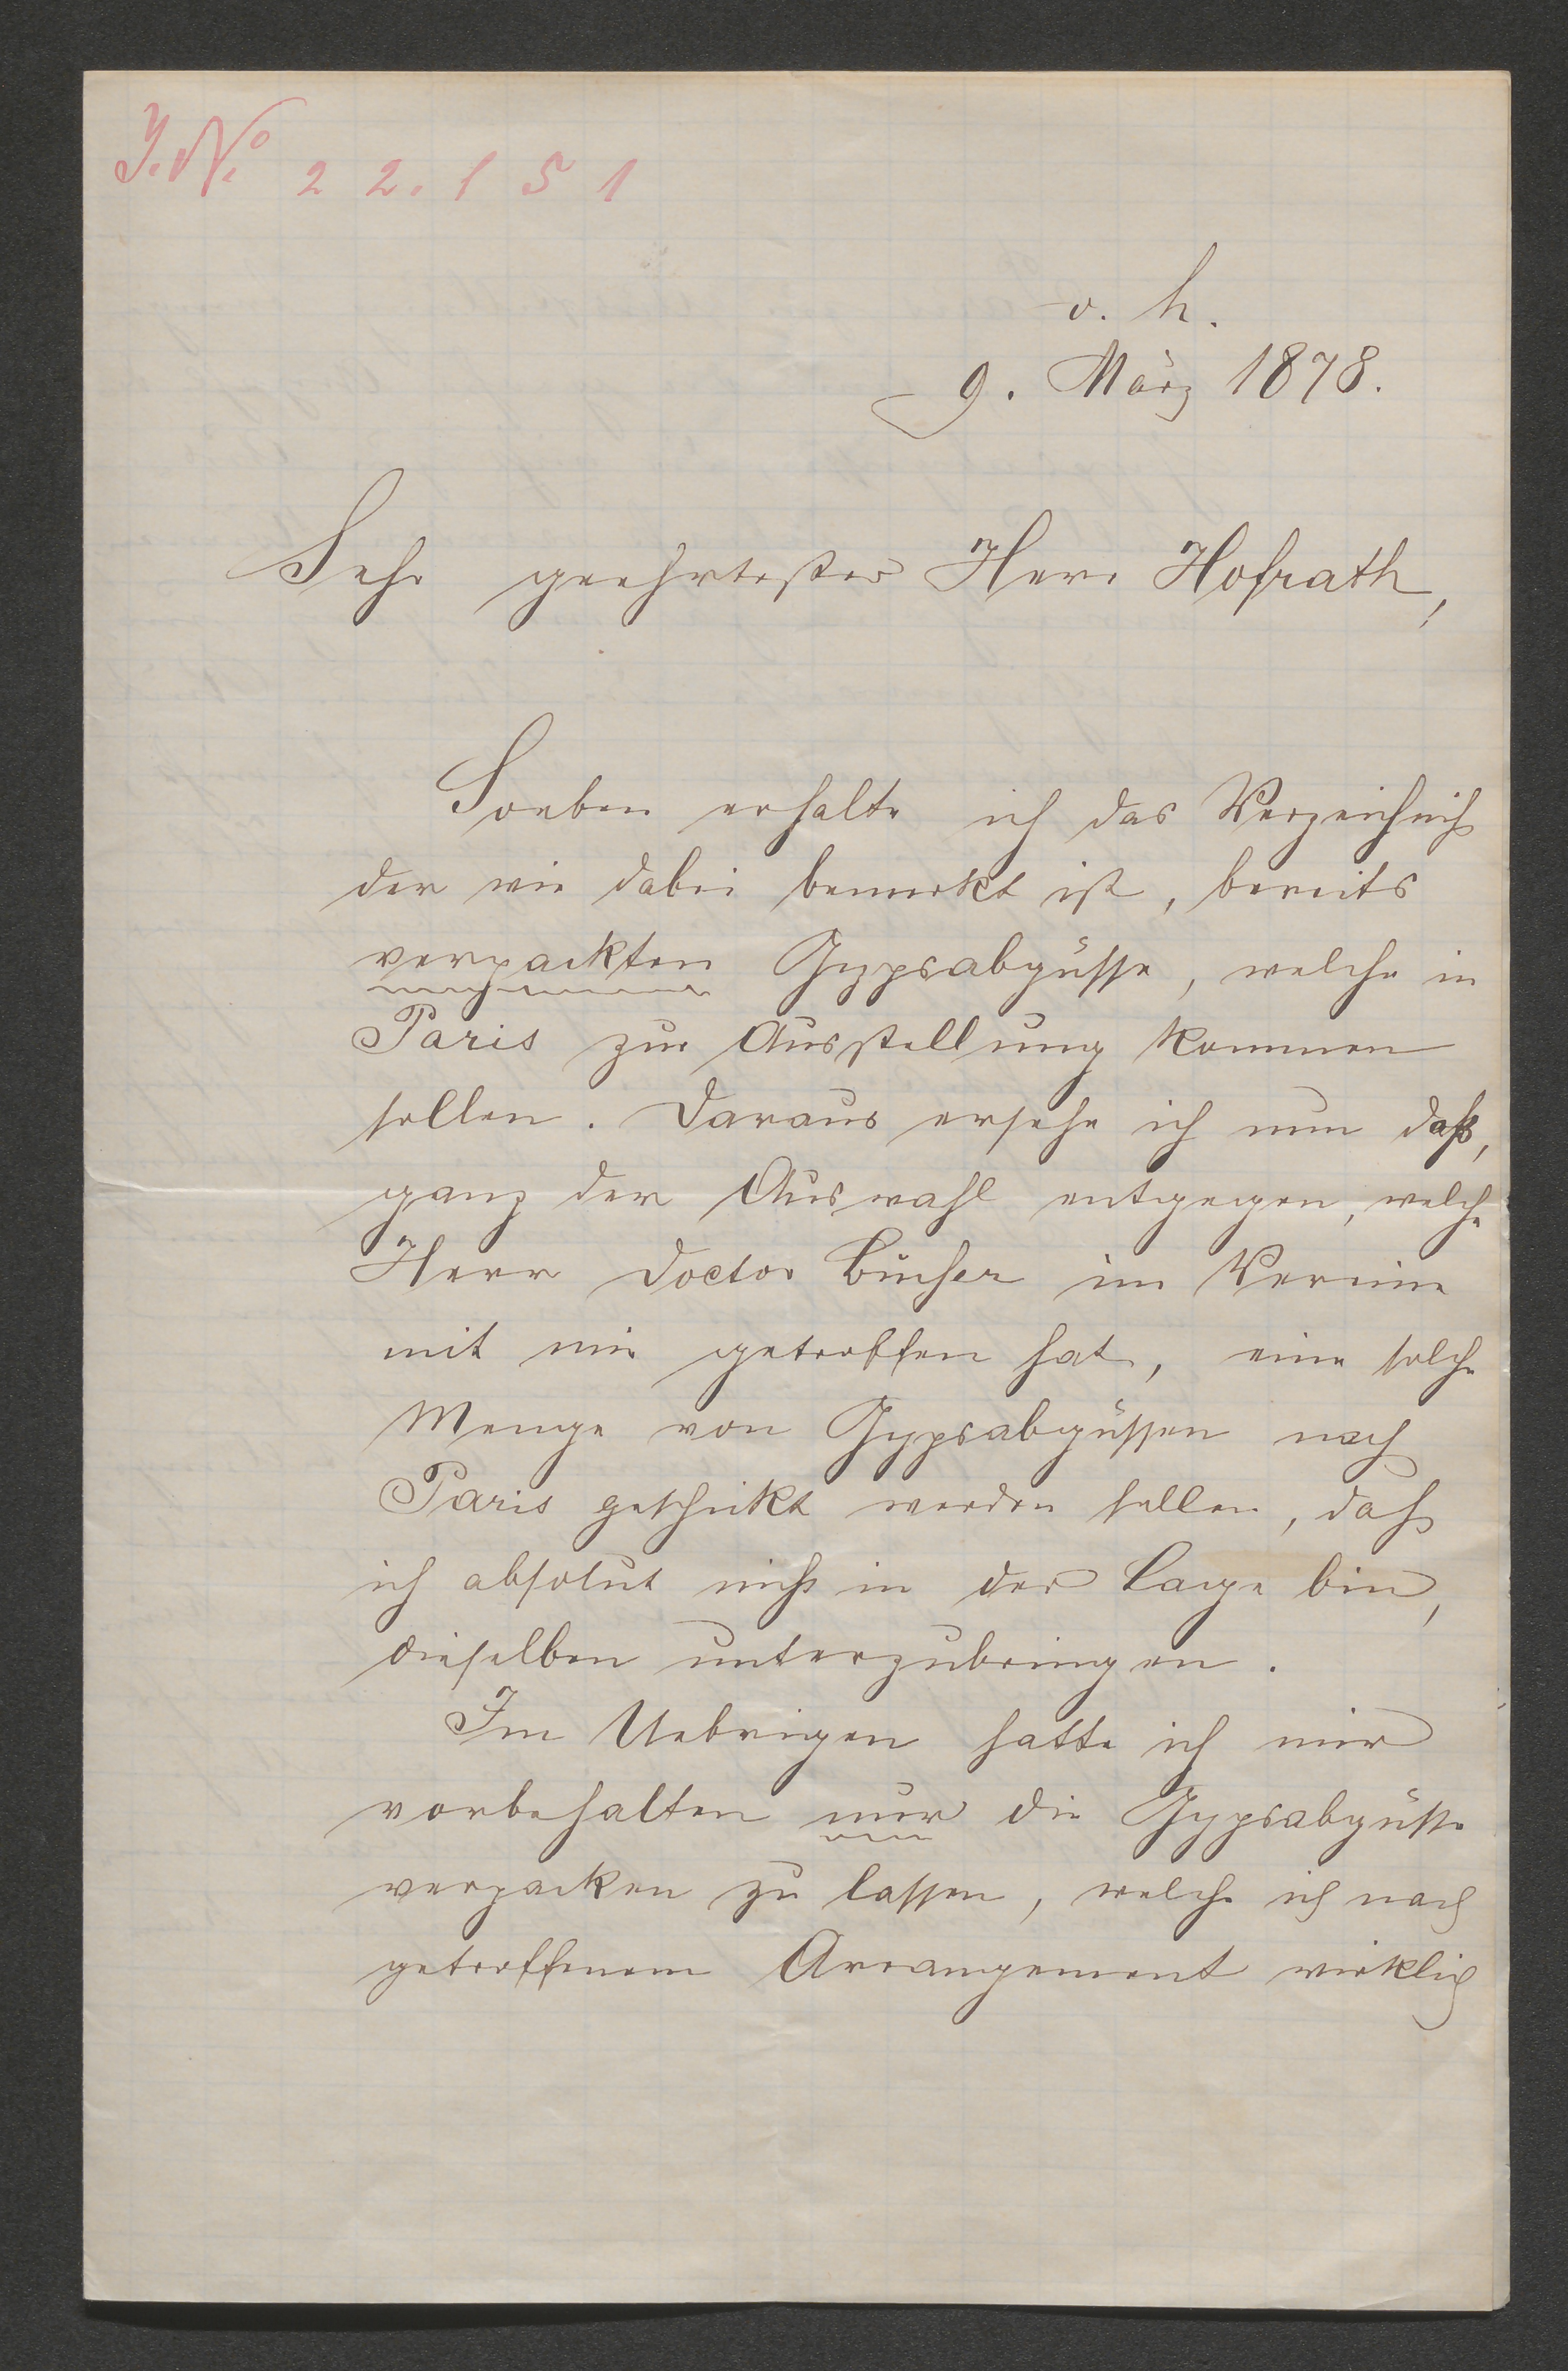 J. No 22.151
v. h.
9. März 1878.
Sehr geehrtester Herr Hofrath,
Soeben erhalte ich das Verzeichniß
der wie dabei bemerkt ist, bereits
verpackten Gypsabgüsse, welche in
Paris zur Ausstellung kommen
sollen. Daraus ersehe ich nun daß,
ganz der Auswahl entgegen, welche
Herr Doctor Bucher im Vereine
mit mir getroffen hat, eine solche
Menge von Gypsabgüssen nach
Paris geschickt werden sollen, daß
ich absolut nicht in der Lage bin,
dieselben unterzubringen.
Im Uebrigen hatte ich mir
vorbehalten nur die Gypsabgüsse
verpacken zu lassen, welche ich nach
getroffenem Arrangement wirklich